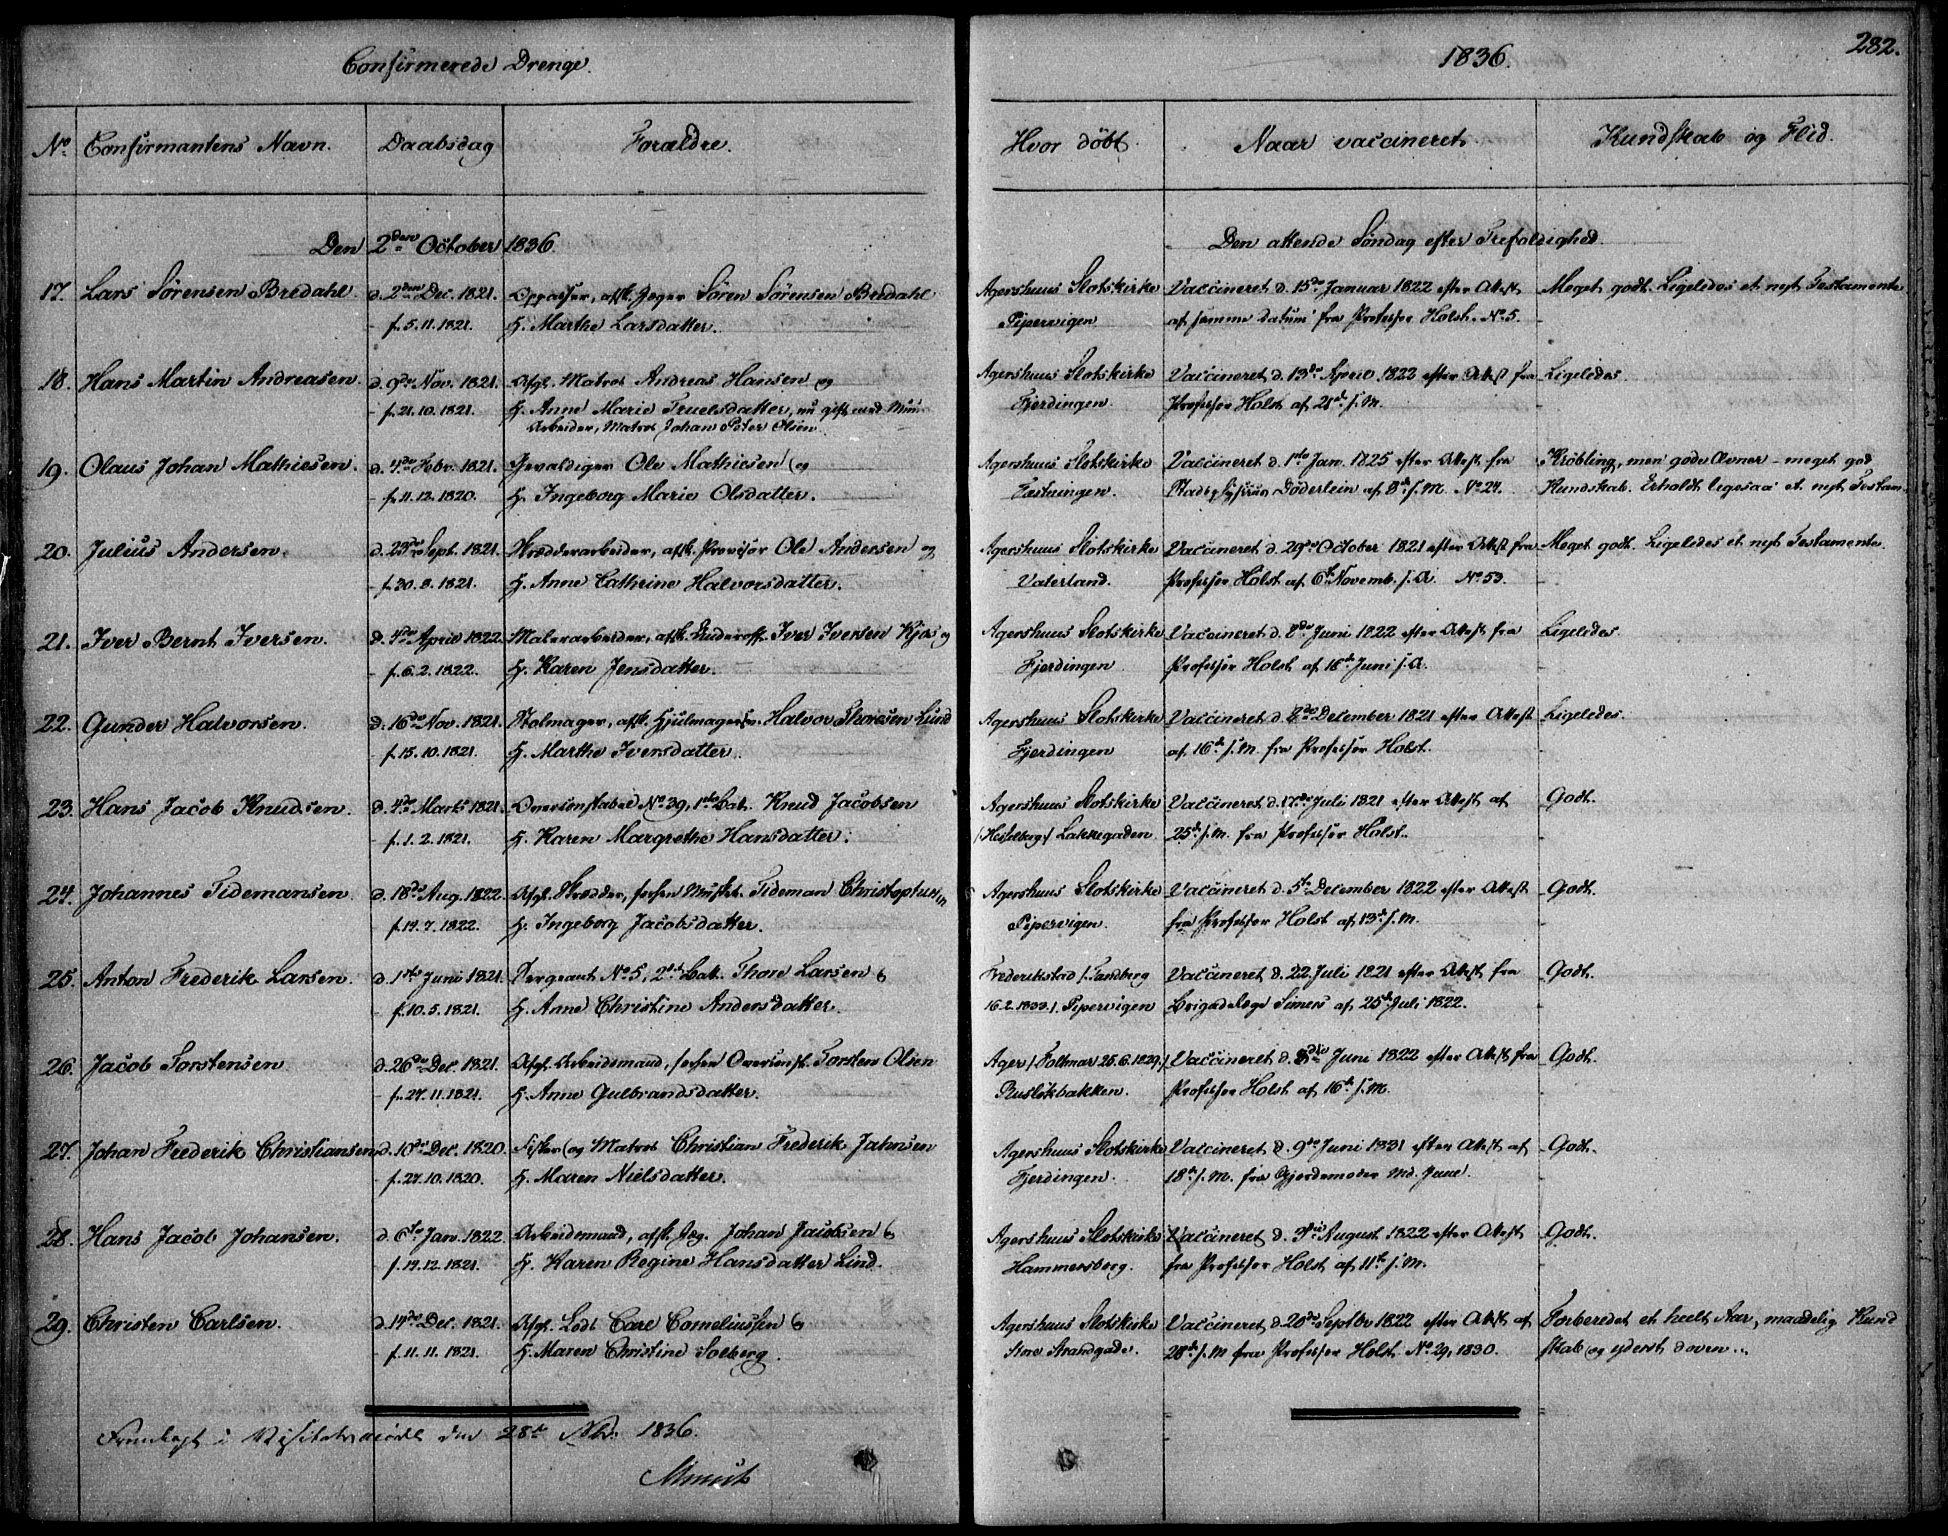 Confirmerede Drenge.
1836.
282.
No Confirmantens Navn. Daabsdag Forældre. Hvor döbt. Naar vaccineret Kundskab og Flid.
Den 2den October 1836. Den attende Söndag efter Trefoldighed.
17. Lars Sörensen Bredahl d. 2den Dec. 1821. Oppasser, afsk. Jæger Sören Sörensen Bredahl Agershuus Slotskirke Vaccineret d. 15de Januar 1822 efter Attest Meget godt. Ligeledes et nyt Testamente
f. 5.11.1821. H. Marthe Larsdatter. Pipervigen af samme Datum fra Professor Holst. No 5.
18. Hans Martin Andreasen. d. 9de Nov. 1821. Afg. Matros Andreas Hansen og Agershuus Slotskirke Vaccineret d. 13de April 1822 efter Attest fra Ligeledes.
f. 21.10.1821. H. Anne Marie Truelsdatter, nu gift med Muur- Fjerdingen. Professor Holst af 21de s. M.
Arbeider, Matros Johan Peter Olsen.
19. Olaus Johan Mathiesen. d. 4de Febr. 1821. Gevaldiger Ole Mathiesen og Agershuus Slotskirke Vaccineret d. 1ste Jan. 1825 efter Attest fra Kröbling, men gode Evner – meget god
f. 11.12.1820. H. Ingeborg Marie Olsdatter. Fæstningen. Stadsphysicus Döderlein af 8de s. M. No 24. Kundskab. Erholdt ligesaa et nyt Testam.
20. Julius Andersen. d. 23de Sept. 1821. Skrædderarbeider, afsk. Provisor Ole Andersen og Agershuus Slotskirke Vaccineret d. 29de October 1821 efter Attest fra Meget godt. Ligeledes et nyt Testamente.
f. 20.8.1821. H. Anne Cathrine Halvorsdatter. Vaterland. Professor Holst af 6te Novemb. s. A. No 53.
21. Iver Bernt Iversen. d. 4de April 1822. Malerarbeider, afsk. Underoff. Iver Iversen Kjos og Agershuus Slotskirke Vaccineret d. 8de Juni 1822 efter Attest fra Ligeledes.
f. 6.2.1822. H. Karen Jensdatter. Fjerdingen Professor Holst af 16de Juni s. A.
22. Gunder Halvorsen. d. 16de Nov. 1821. Stolmager, afsk. Hjulmagersv. Halvor Thoresen Lund Agershuus Slotskirke Vaccineret d. 8de December 1821 efter Attest Ligeledes.
f. 15.10.1821. H. Marthe Iversdatter. Fjerdingen af 16de s. M. fra Professor Holst.
23. Hans Jacob Knudsen. d. 4de Marts 1821. Overconstabel No 39, 1ste Bat. Knud Jacobsen Agershuus Slotskirke Vaccineret d. 17de Juli 1821 efter Attest af Godt.
f. 1.2.1821. H. Karen Margrethe Hansdatter. /Hesselberg/ Lakkegaden. 25de s. M. fra Professor Holst.
24. Johannes Tidemansen d. 18de Aug. 1822. Afg. Skrædder, forhen Musket. Tideman Christophersen Agershuus Slotskirke Vaccineret d. 5te December 1822 efter Attest Godt.
f. 19.7.1822. H. Ingeborg Jacobsdatter. Pipervigen. fra Professor Holst af 13de s. M.
25. Anton Frederik Larsen. d. 1ste Juni 1821. Sergeant No 5, 2det Bat. Thore Larsen & Frederikstad /Tandberg Vaccineret d. 22 Juli 1821 efter Attest fra Godt.
f. 10.5.1821. H. Anne Christine Andersdatter. 16.2.1833./ Pipervigen Brigadelæge Simers af 25de Juli 1822.
26. Jacob Torstensen d. 26de Dec. 1821. Afg. Arbeidsmand, forhen Overconst. Torsten Olsen Ager /Foltmar 25.6.1829./ Vaccineret d. 8de Juni 1822 efter Attest fra Godt.
f. 27.11.1821. H. Anne Gulbrandsdatter. Ruslökbakken. Professor Holst af 16de s. M.
27. Johan Frederik Christiansen d. 10de Dec. 1820. Fisker og Matros Christian Frederik Jahnsen Agershuus Slotskirke Vaccineret d. 9de Juni 1831 efter Attest af Godt.
f. 27.10.1820. H. Maren Nielsdatter. Fjerdingen. 18de s. M. fra Gjordemoder Md. Juul.
28. Hans Jacob Johansen. d. 6te Jan. 1822. Arbeidsmand, afsk. Jæg. Johan Jacobsen & Agershuus Slotskirke Vaccineret d. 3die August 1822 efter Attest Godt.
f. 19.12.1821. H. Karen Regine Hansdatter Lind. Hammersberg. fra Professor Holst af 11te s. M.
29. Christen Carlsen. d. 14de Dec. 1821. Afg. Lods Carl Corneliussen & Agershuus Slotskirke Vaccineret d. 20de Septbr 1822 efter Attest af Forberedet et heelt Aar, maadelig Kund
f. 11.11.1821. H. Maren Christine Solberg. Store Strandgade. 28de s. M. fra Professor Holst No 29, 1830. skab og yderst doven.
Fremlagt i Visitatsmödet den 28de 1836.